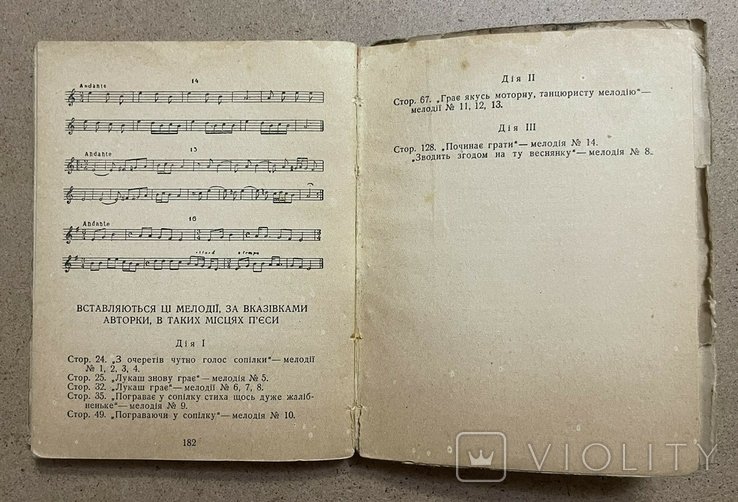 14
Andante
15
Andante
16
Andante
ritard
a tempo
ВСТАВЛЯЮТЬСЯ ЦІ МЕЛОДІЇ, ЗА ВКАЗІВКАМИ
АВТОРКИ, В ТАКИХ МІСЦЯХ П'ЄСИ
Дія I
Стор. 24. „З очеретів чутно голос сопілки“— мелодії
№ 1, 2, 3, 4.
Стор. 25. „Лукаш знову грає“— мелодія № 5.
Стор. 32. „Лукаш грає“— мелодії № 6, 7, 8.
Стор. 35. „Пограває у сопілку стиха щось дуже жаліб-
неньке“— мелодія № 9.
Стор. 49. „Пограваючи у сопілку“— мелодія № 10.
182
Дія II
Стор. 67. „Грає якусь моторну, танцюристу мелодію“—
мелодії № 11, 12, 13.
Дія III
Стор. 128. „Починає грати“— мелодія № 14.
„Зводить згодом на ту веснянку“— мелодія № 8.
VIOLITY